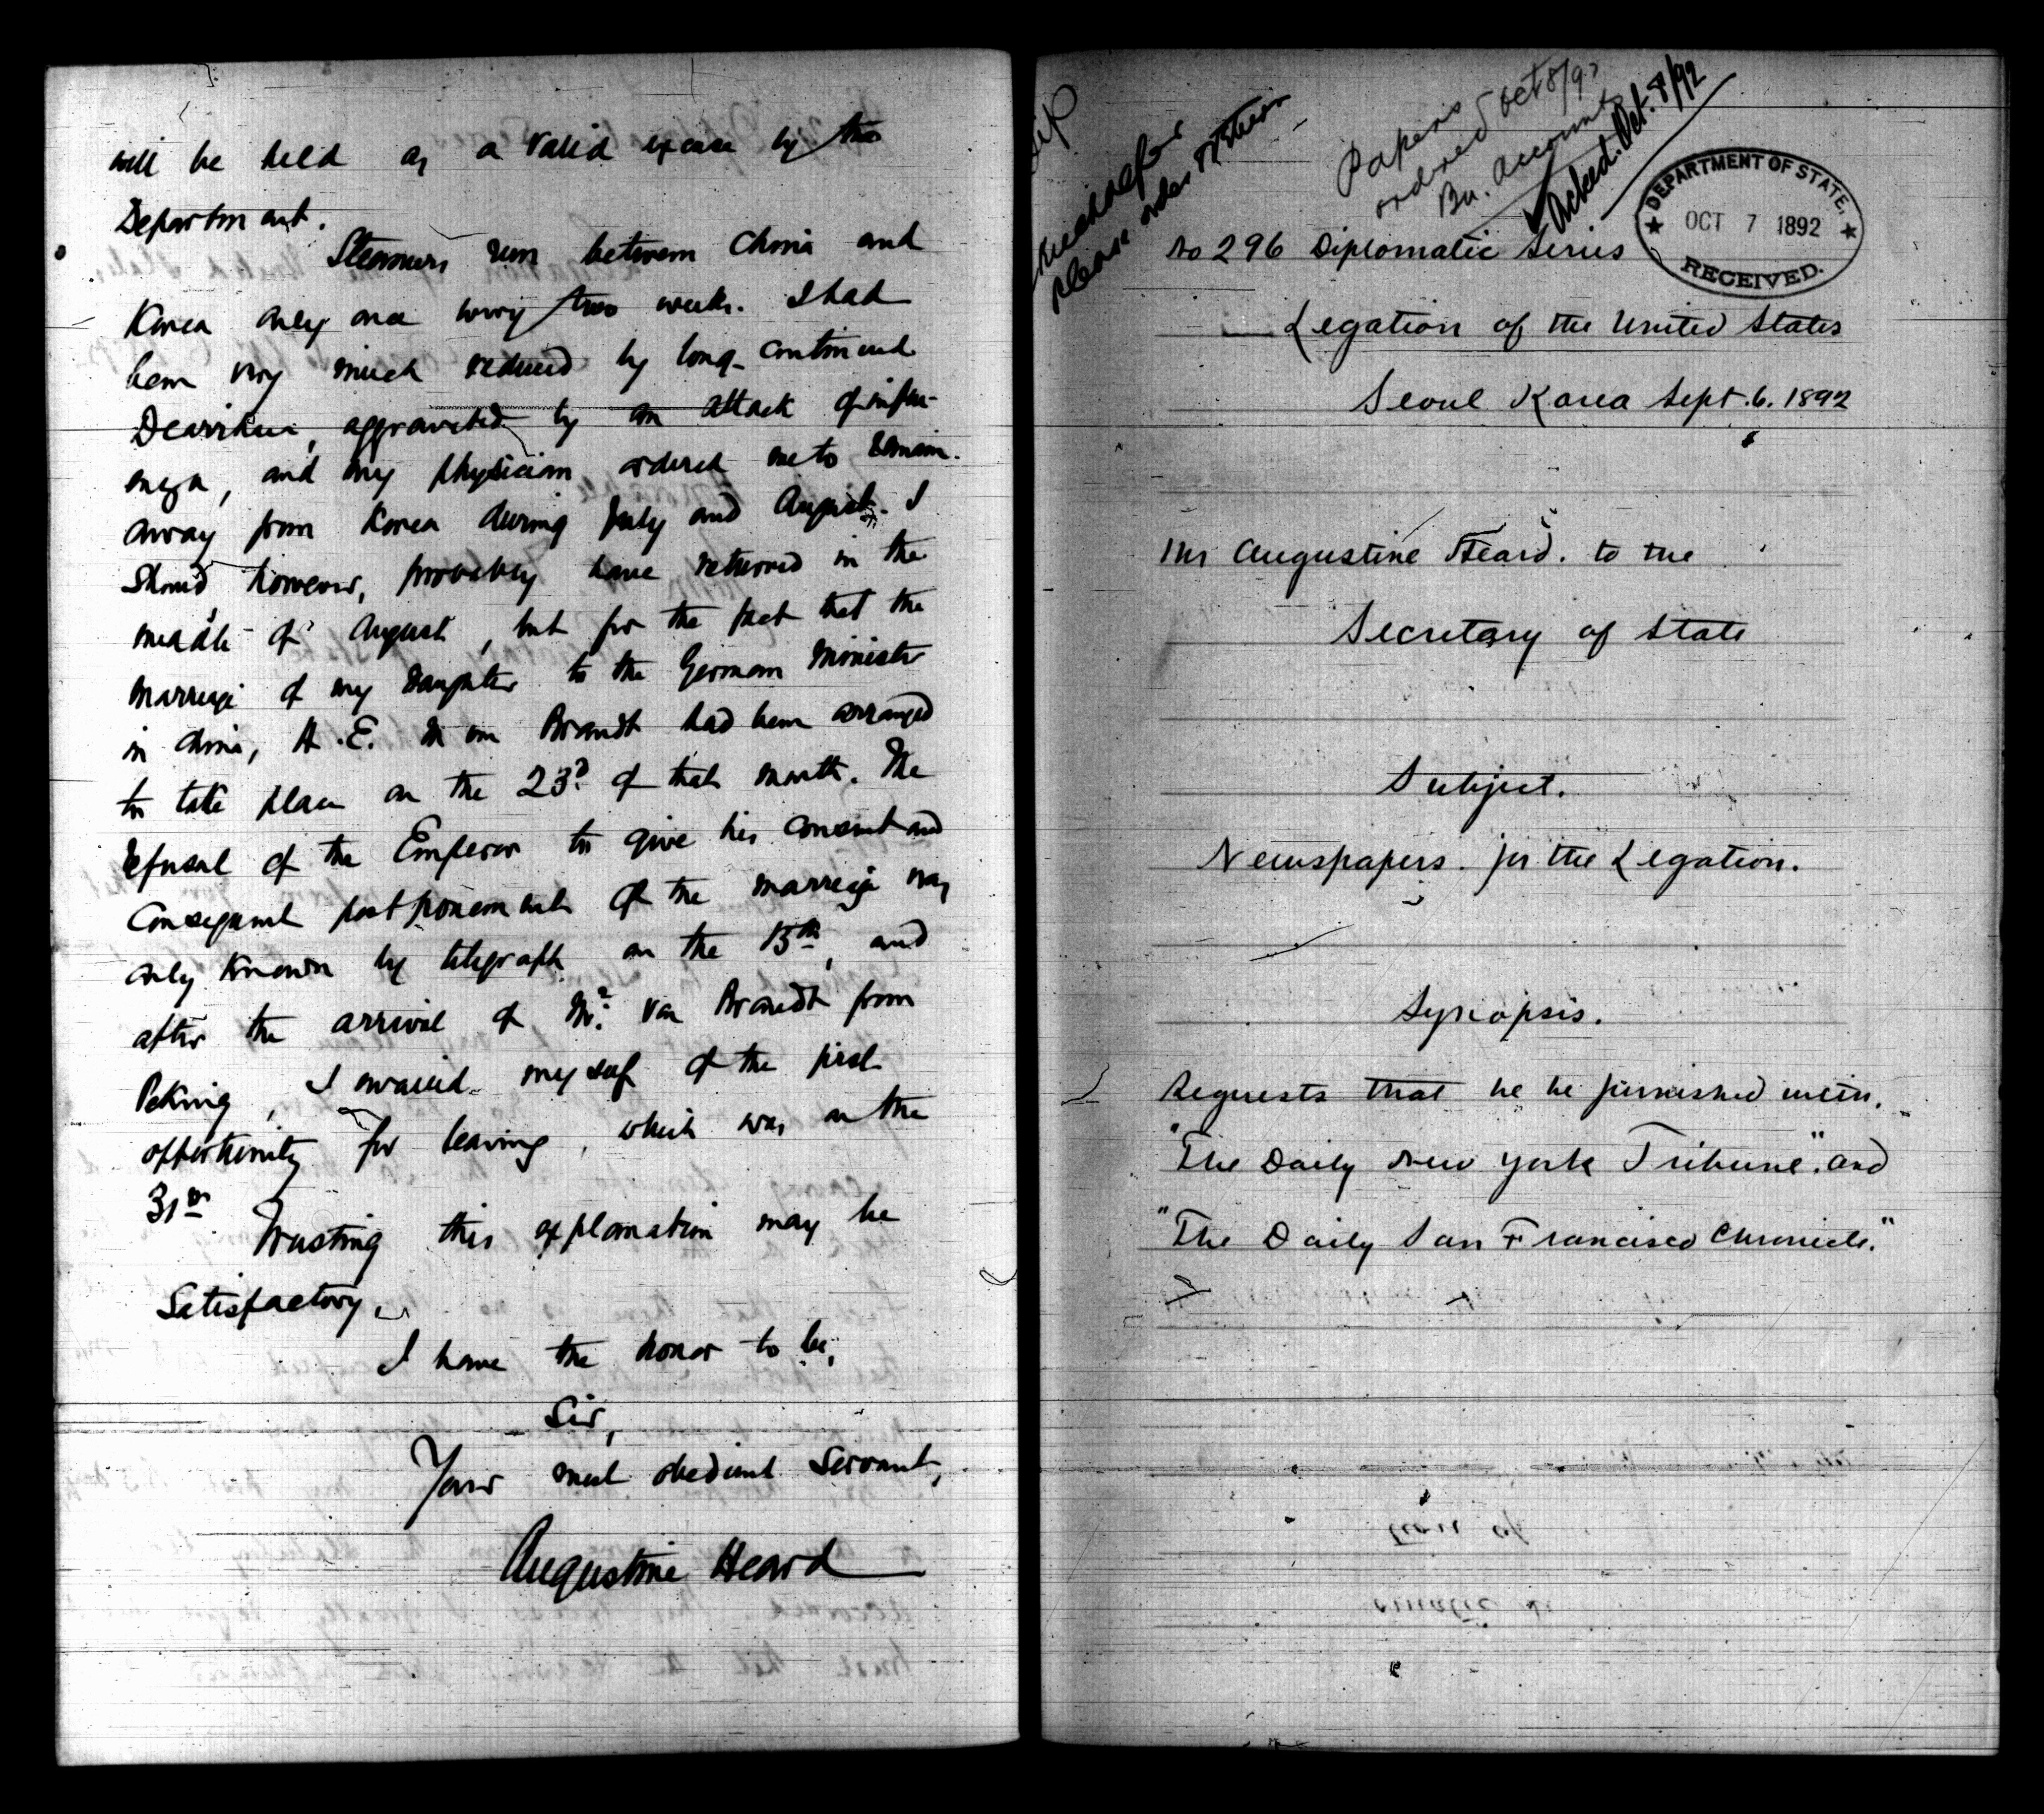 will be held as a valid excuse by the
Department.
Steamers run between China and
Korea only once every two weeks. I had
been very much reduced by long-continued
Diarrhea, aggravated by an attack of influ-
enza, and my physician ordered me to remain
away from Korea during July and August. I
should however, probably have returned in the
middle of August, but for the fact that the
marriage of my daughter to the German Minister
in China, H.E. M von Brandt had been arranged
to take place on the 23d of that month. The
refusal of the Emperor to give his consent and
consequent postponement of the marriage was
only known by telegraph on the 15th, and
after the arrival of Mr. von Brandt from
Peking, I availed myself of the first
opportunity for leaving, which was on the
31st
Trusting this explanation may be
Satisfactory,
I have the honor to be,
Sir,
Your most obedient Servant,
Augustine Heard
Dip
please order
Papers
ordered Oct 8/92
Bu. Accounts
Acked. Oct. 8/92
DEPARTMENT OF STATE,
OCT 7 1892
RECEIVED.
No 296 Diplomatic Series
Legation of the United States
Seoul Korea Sept. 6. 1892
Mr Augustine Heard. to the
Secretary of State
Subject.
Newspapers. for the Legation.
Synopsis.
Requests that he be furnished with,
"The Daily New York Tribune", and
"The Daily San Francisco Chronicle."